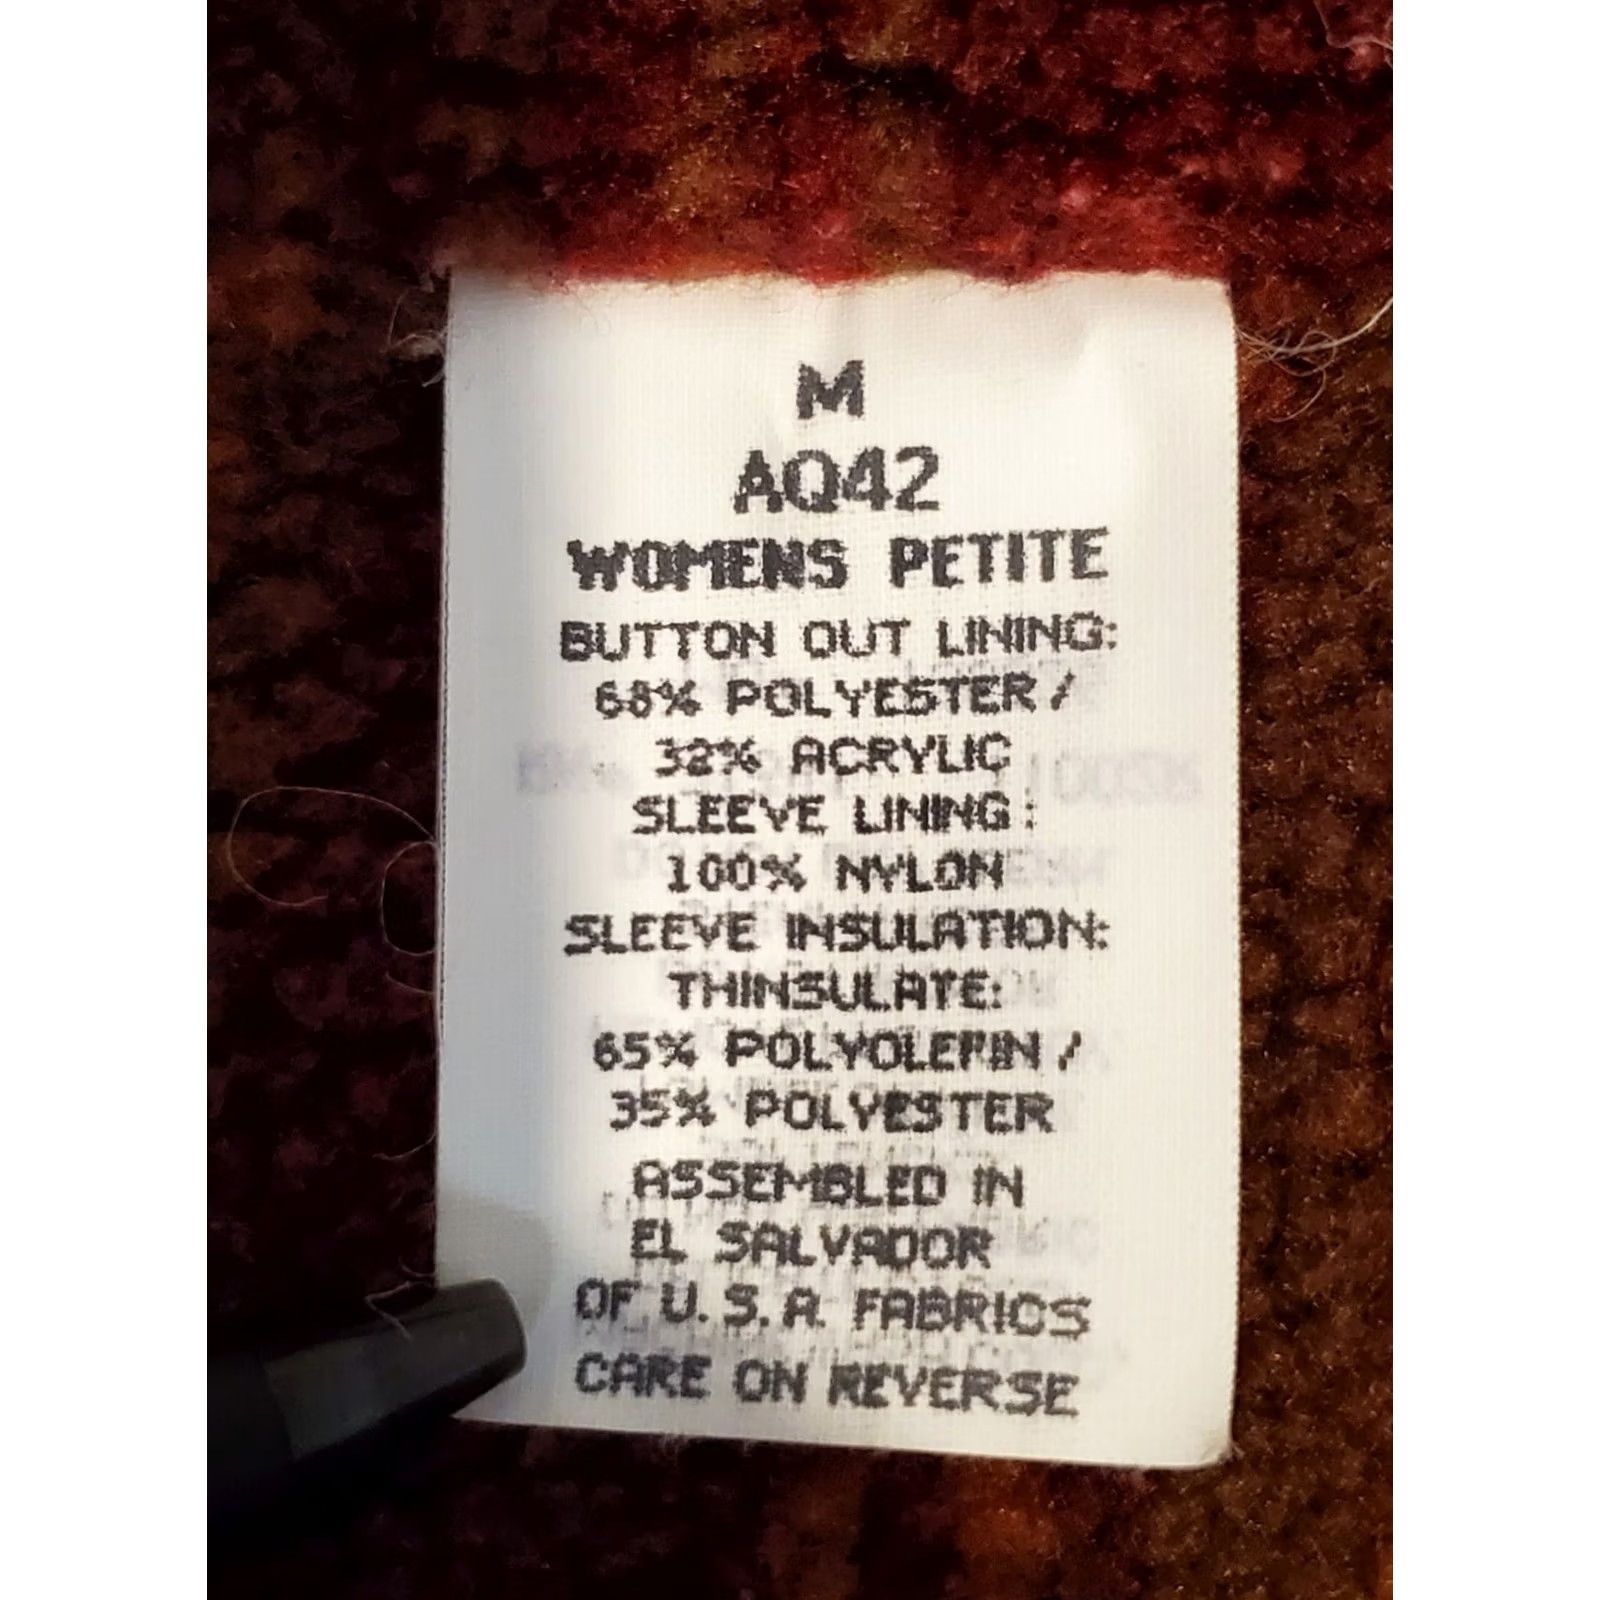 M
AQ42
WOMENS PETITE
BUTTON OUT LINING:
68% POLYESTER /
32% ACRYLIC
SLEEVE LINING:
100% NYLON
SLEEVE INSULATION:
THINSULATE:
65% POLYOLEFIN /
35% POLYESTER
ASSEMBLED IN
EL SALVADOR
OF U.S.A. FABRICS
CARE ON REVERSE